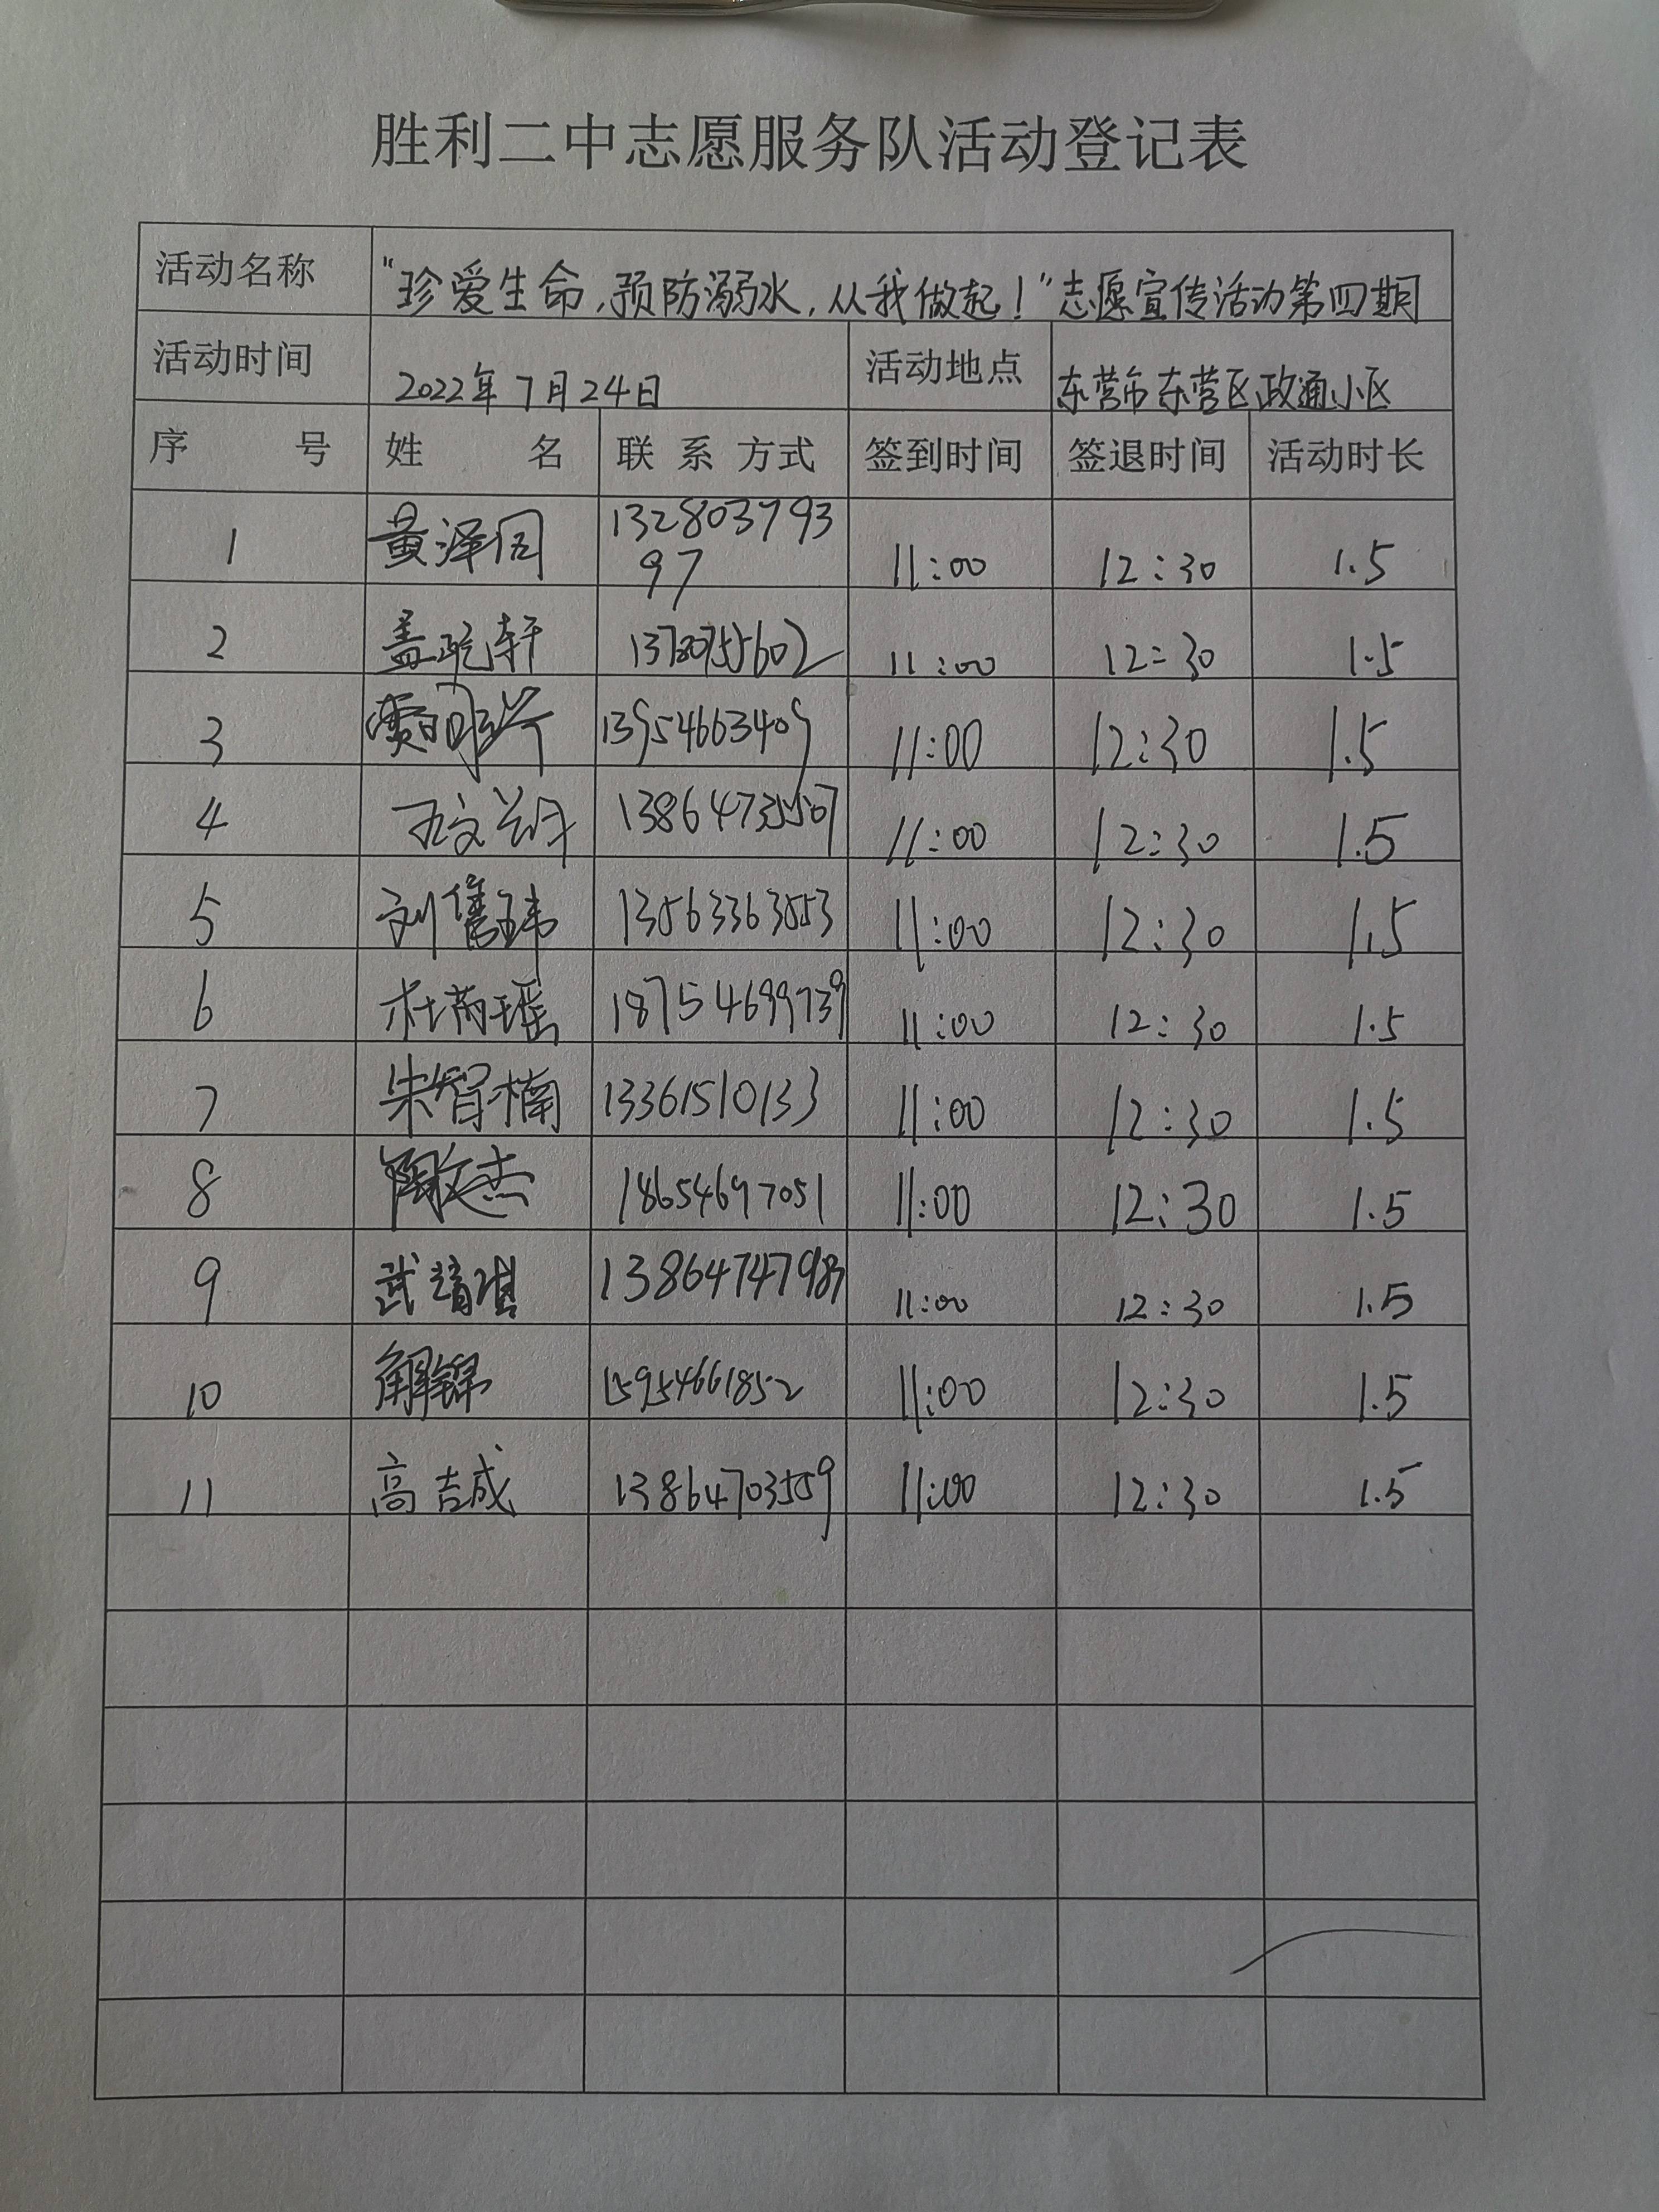 胜利二中志愿服务队活动登记表
活动名称 “珍爱生命,预防溺水,从我做起!”志愿宣传活动第四期
活动时间 2022年7月24日 活动地点 东营市东营区政通小区
序 号 姓 名 联 系 方式 签到时间 签退时间 活动时长
1 黄泽同 132803793
97 11:00 12:30 1.5
2 盖 轩 11:00 12:30 1.5
3 13954663409 11:00 12:30 1.5
4 11:00 12:30 1.5
5 刘 玮 13563363553 11:00 12:30 1.5
6 杜芮瑶 18754699739 11:00 12:30 1.5
7 朱智楠 13361510133 11:00 12:30 1.5
8 陶文杰 18654697051 11:00 12:30 1.5
9 武靖琪 11:00 12:30 1.5
10 解锦 15954661852 11:00 12:30 1.5
11 高吉成 13864703559 11:00 12:30 1.5